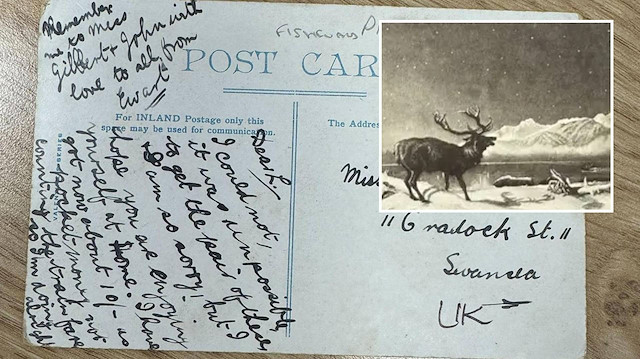 Remember
me to Miss
Gilbert & John with
love to all from
Ewart
FISHGUARD
POST CAR
For INLAND Postage only this
space may be used for communication.
The Addre
Dear L.
I could not,
it was impossible
to get the pair of these
I am so sorry. but I
hope you are enjoying
yourself at home. I have
got now about 10/- as
pocket-money not
counting the train fare
so I'm doing
alright
Miss
11 Cradock St.
Swansea
UK